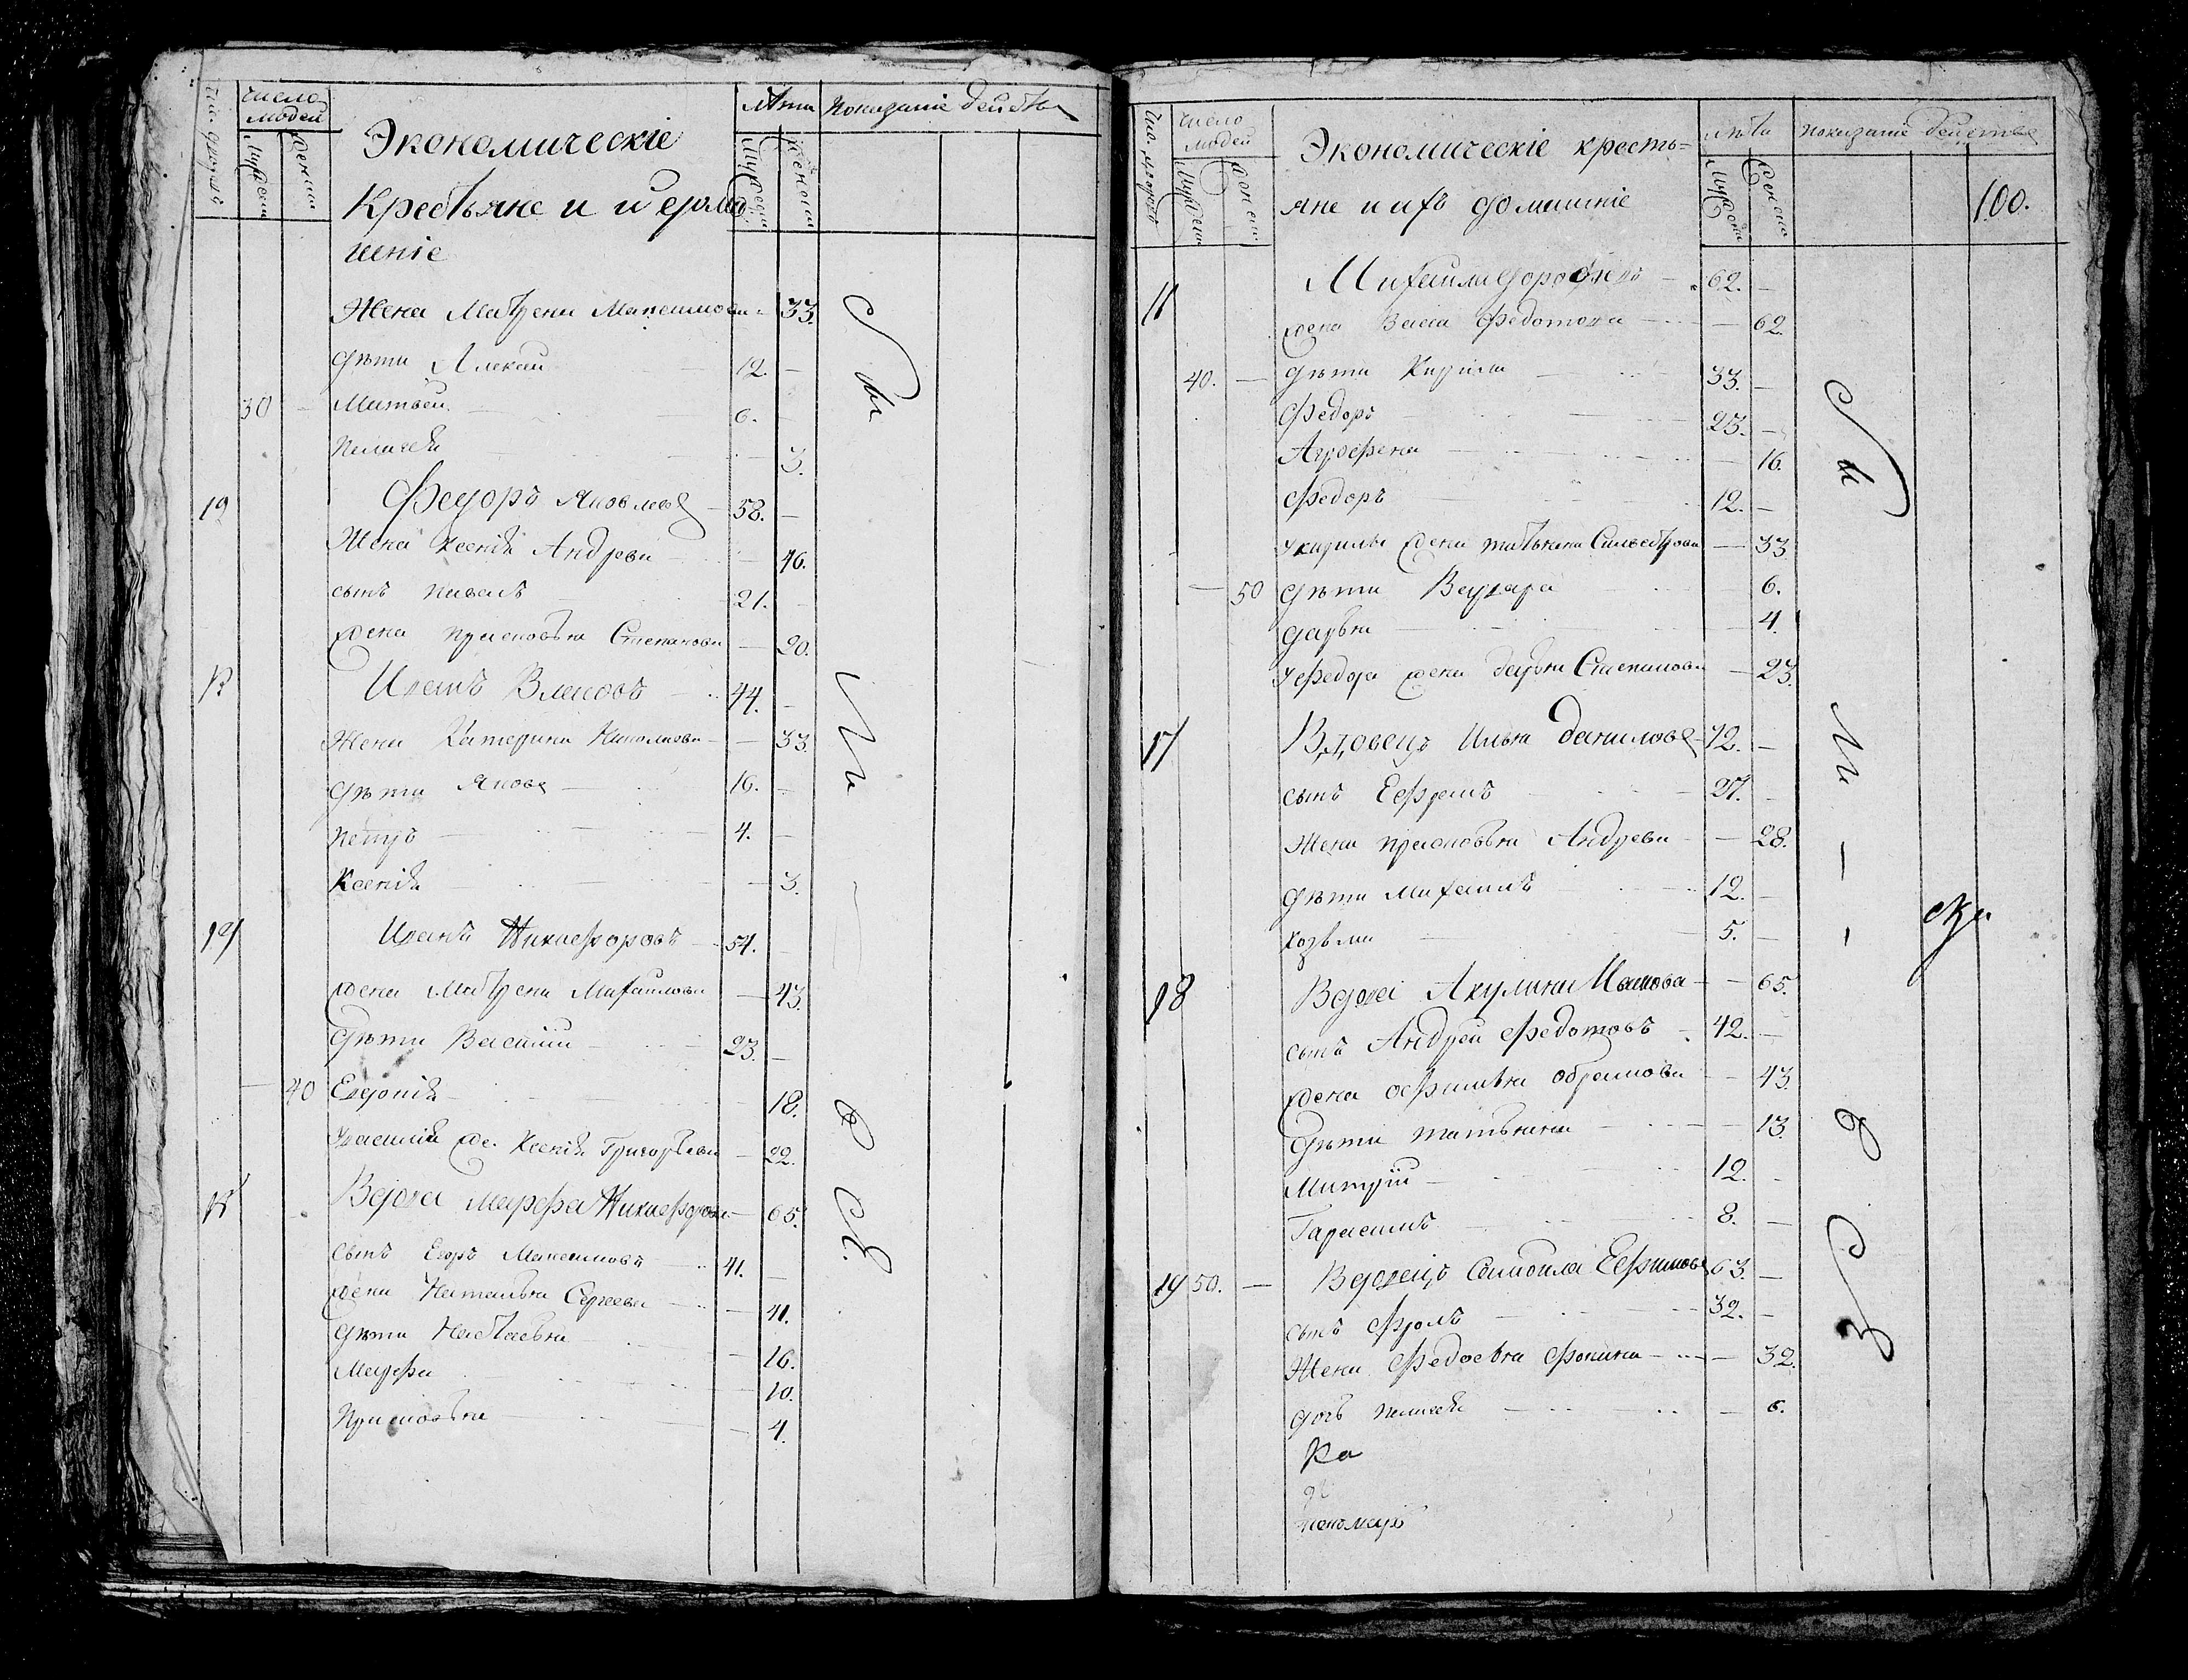 Чис. дворовъ
число людей
Мужеска
Женска
Экономическіе
Крестьяне и и домаш
неніе
лѣта
Мужеска
Женска
показаніе действа
Жена Матрена Максимова 33.
дѣти Алексѣй 12. —
30 — Матвѣй 6. —
Пелагея — 3.
12 Федоръ Яковлевъ 58. —
Жена Ксенія Андреева — 46.
сынъ павелъ 21. —
жена прасковья Степанова — 20.
13 Иванъ Власовъ 44. —
Жена Катерина Николаева — 33.
дѣти Яковъ 16. —
петръ 4. —
Ксенія — 3.
14 Иванъ Никифоровъ 54. —
жена Матрена Михаилова — 43.
дѣти Василий 23. —
— 40 Евдокія — 18.
У василия же. Ксенія Григорьева — 22.
15 Вдова марфа Никифорова — 65.
сынъ Егоръ Максимовъ 41. —
жена Наталья Сергеева — 41.
дѣти Настасья — 16.
Марфа — 10.
Прасковья — 4.
Чис. дворовъ
число людей
Мужеска
Женска
Экономическіе кресть=
яне и ихъ домашніе
лѣта
Мужеска
Женска
показаніе действа
100.
16 Михаила дорофѣевъ 62. —
жена Васса Федотова — 62.
40. — дѣти Кирила 33. —
Федоръ 23. —
Аграфена — 16.
Федоръ 12. —
У кирилы жена татьяна Сильвестрова — 33
— 50 дѣти Варвара — 6.
дарья — 4.
У Федора жена дарья Степанова — 23.
17 Вдовецъ Илья даниловъ 72. —
сынъ Ефремъ 27. —
Жена прасковья Андреева — 28.
дѣти михаилъ 12. —
козьма 5. —
18 Вдова Акулина — 65.
сынъ Андрей Федотовъ 42. —
жена офимья обрамова — 43.
дѣти татьяна — 13.
Митрій 12. —
Гарасимъ 8. —
19 50. — Вдовецъ Самоила Ефимовъ 63. —
сынъ Фролъ 32. —
Жена Федосья Фокина — 32.
дочь пелагея — 6.
Ка